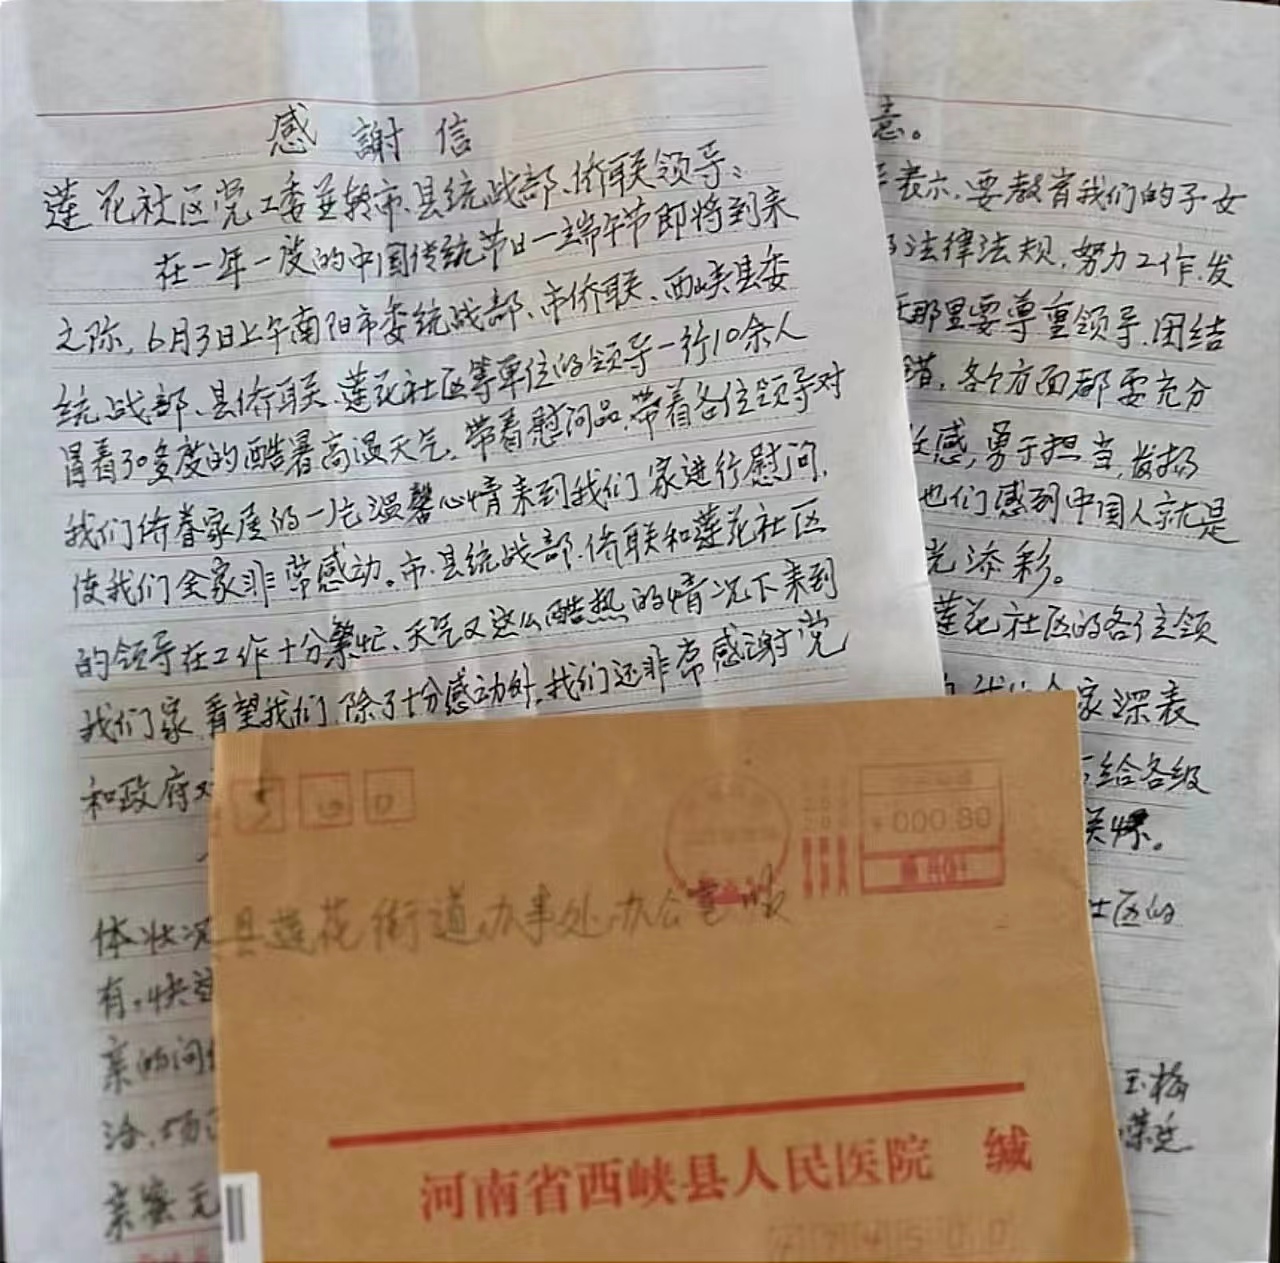 感謝信
莲花社区党工委并转市、县统战部、侨联领导:
在一年一度的中国传统节日一端午节即将到来
之际,6月3日上午南阳市委统战部、市侨联、西峡县委
统战部、县侨联、莲花社区等单位的领导一行10余人
冒着30多度的酷暑高温天气,带着慰问品,带着各位领导对
我们侨眷家属的一片温馨心情来到我们家进行慰问,
使我们全家非常感动。市、县统战部、侨联和莲花社区
的领导在工作十分繁忙、天气又这么酷热的情况下来到
我们家,看望我们,除了十分感动外,我们还非常感谢党
和政府对
体状况
有。快
亲的问
治、
亲密无
意。
表示,要教育我们的子女
法律法规,努力工作,发
那里要尊重领导,团结
错,各个方面都要充分
感,勇于担当,发扬
他们感到中国人就是
光添彩。
莲花社区的各位领
家深表
给各级
关怀。
社区的
玉梅
荣廷
县莲花街道办事处办公室收
000.80
河南省西峡县人民医院 缄